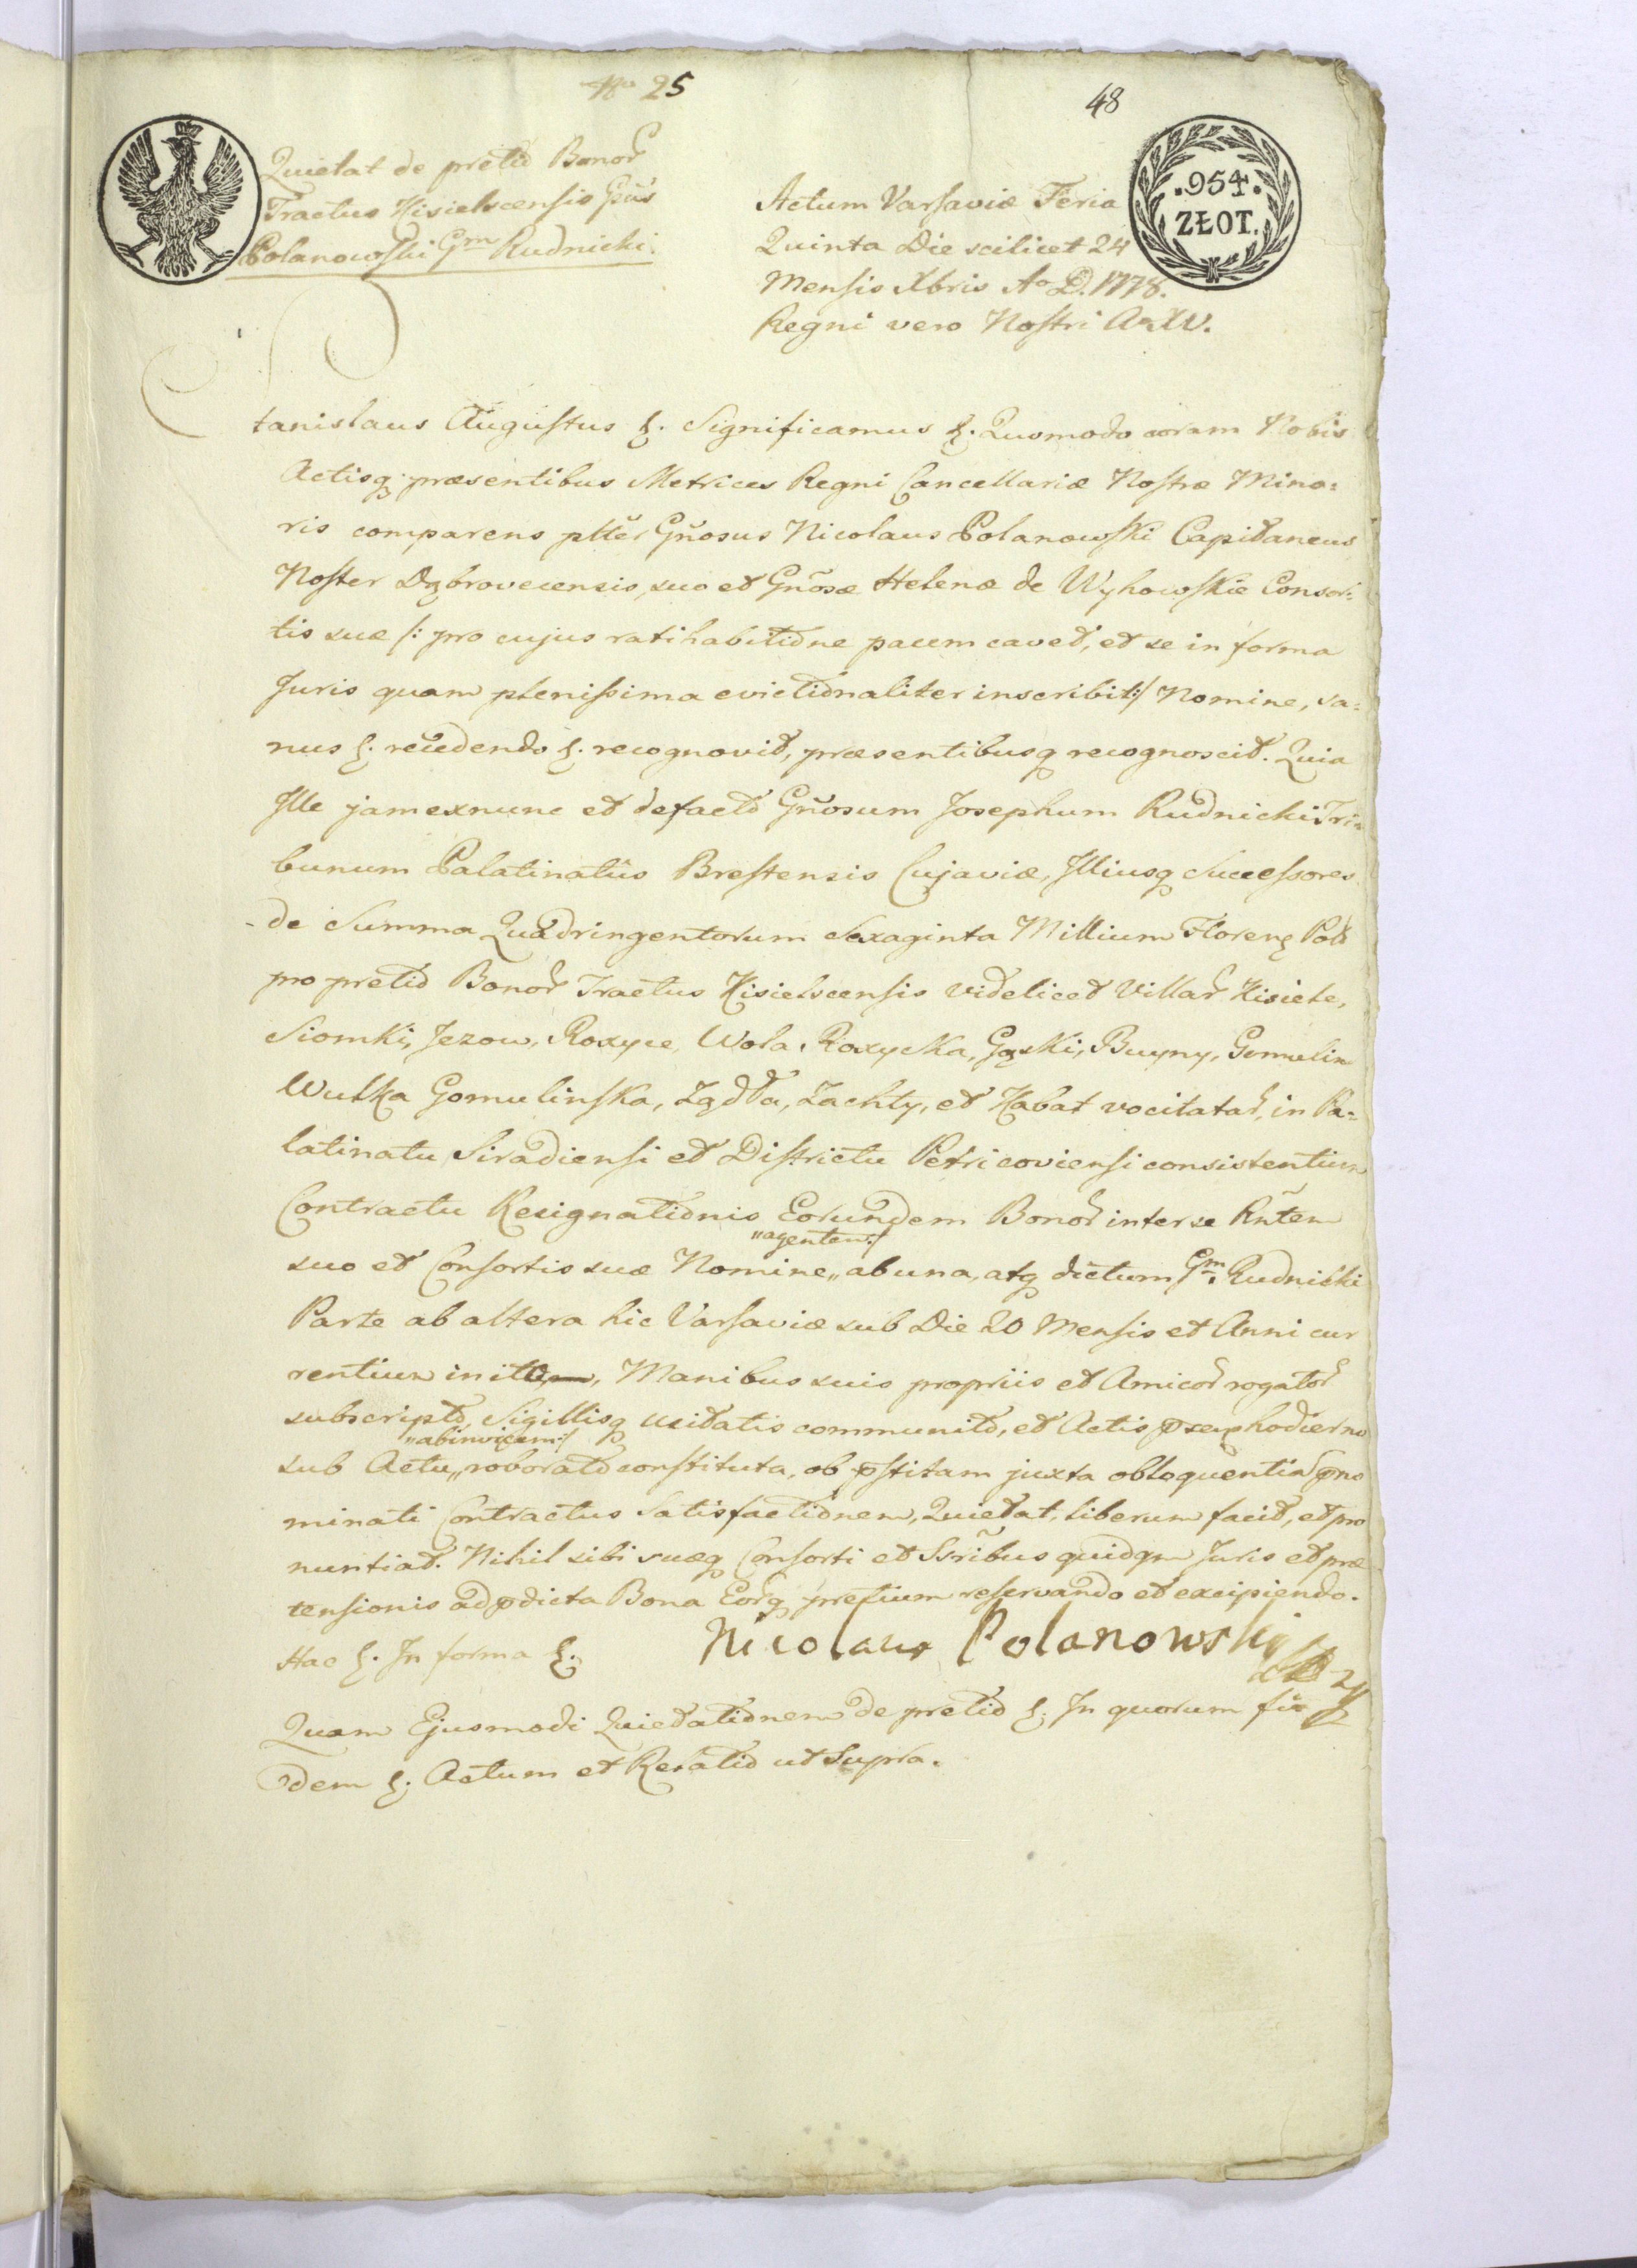 No 25
48
.954.
ZŁOT.
Quietat de pretio Bonor
Tractus Kisielscensis Gñus
Polanowski Gm Rudnicki.
Actum Varsaviæ Feria
Quinta Die scilicet 24
Mensis Xbris Ao D. 1778.
Regni vero Nostri Ao XV.
Stanislaus Augustus &. Significamus &. Quomodo coram Nobis
Actisq præsentibus Metrices Regni Cancellariæ Nostræ Mino:
ris comparens pltter Gñosus Nicolaus Polanowski Capitaneus
Noster Dąbrovecensis, suo et Gñosæ Helenæ de Wyhowskie Consor:
tis suæ /: pro cujus ratihabitione pacem cavet, et se in forma
Juris quam plenissima evictionaliter inscribit:/ Nomine, sa:
nus &. recedendo &. recognovit, præsentibusq recognoscit. Quia
Ille jam exnunc et defacto Gñosum Josephum Rudnicki Tri:
bunum Palatinatus Brestensis Cujaviæ, Illiusq Successores
de Summa Quadringentorum Sexaginta Millium Floren Pol
pro pretio Bonor Tractus Kisielscensis videlicet Villar Kisiele,
Siomki, Jezow, Roxyce, Wola Roxycka, Gąski, Buyny, Gomulin
Wulka Gomulinska, Zachty, et Kabat vocitatar, in Pa:
latinatu Siradiensi et Districtu Petricoviensi consistentium
Contractu Resignationis Eorundem Bonor inter se Rñtem
"agentem:/
suo et Consortis suæ Nomine" ab una, atq dictum Gm. Rudnicki
Parte ab altera hic Varsaviæ sub Die 20 Mensis et Anni cur
rentium inito, Manibus suis propriis et Amicor rogator
subscripto, Sigillisq usitatis communito, et Actis hodierno
"abinvicem:/
sub Actu" roborato constituta, ob pstitam juxta obloquentia pno
minati Contractus Satisfactionem, Quietat, liberum facit, et pro
nuntiat. Nihil sibi suæq Consorti et Ssribus quidqm Juris et præ
tensionis ad pdicta Bona Eorq pretium reservando et excipiendo.
Hac &. In forma &.
Nicolaus Polanowski
Quam Ejusmodi Quietationem de pretio &. In quorum fi:
dem &. Actum et Relatio ut Supra.